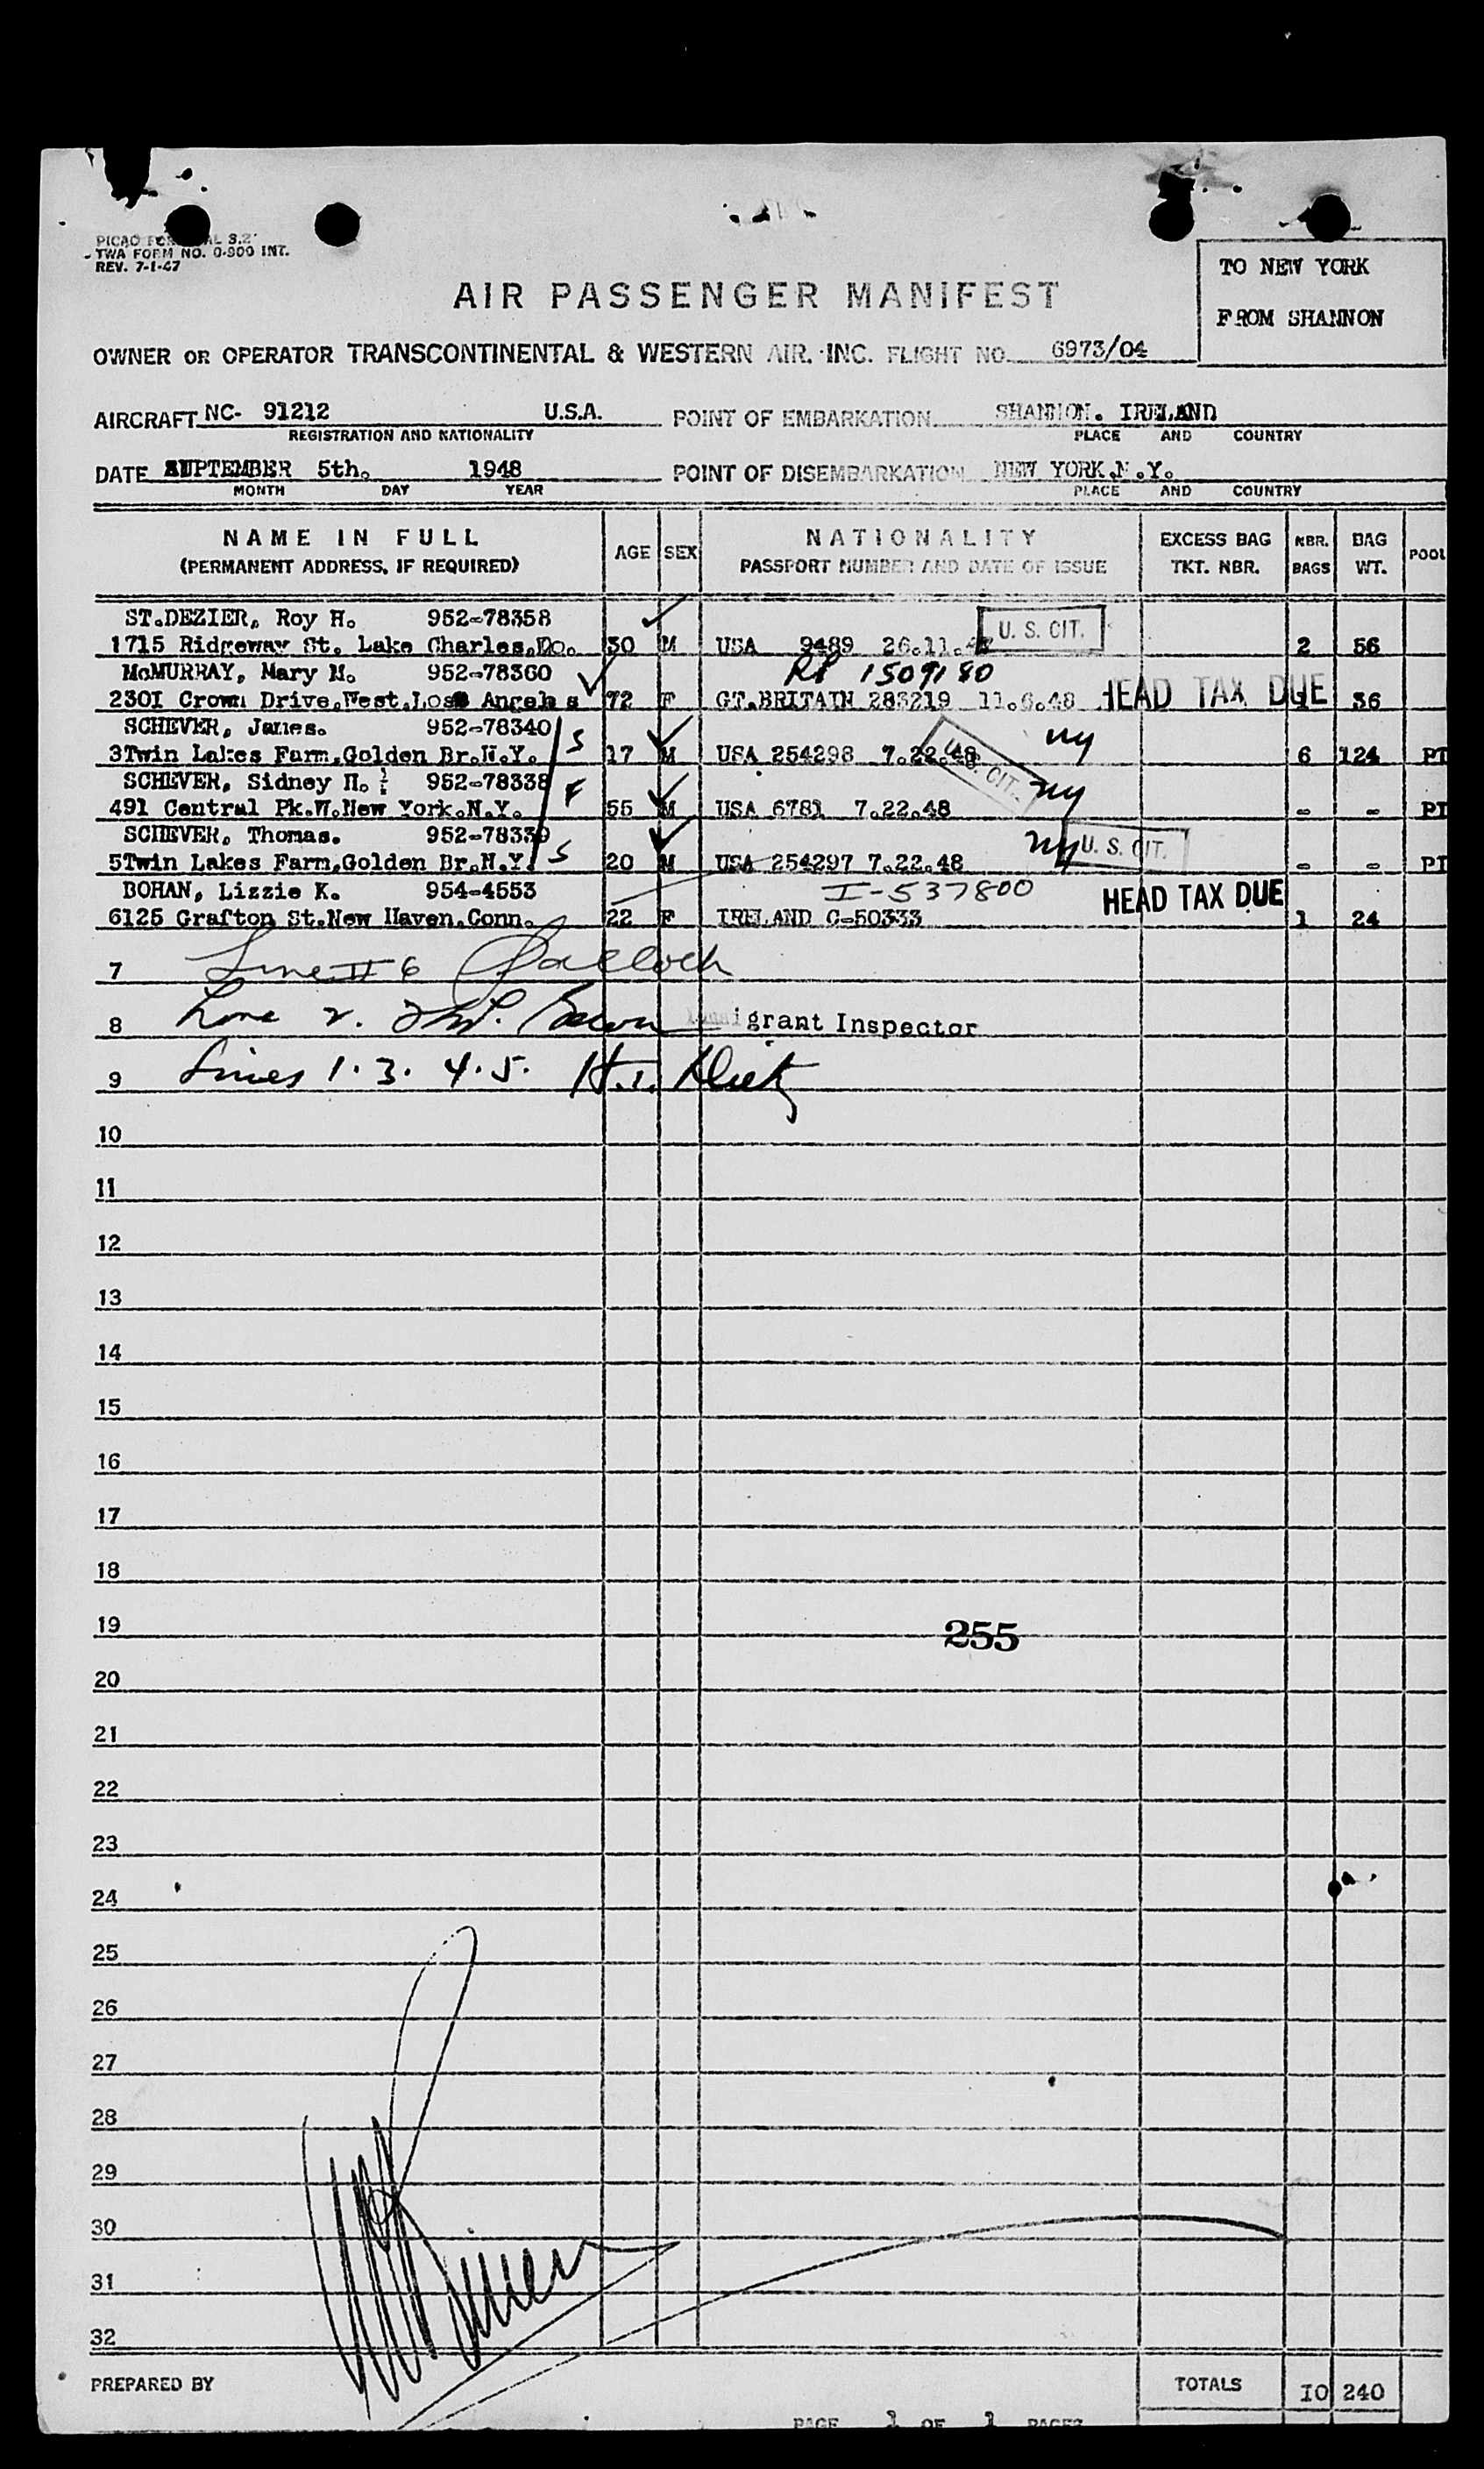 PICAO FO AL 3.2
TWA FORM NO. 0-900 INT.
REV. 7-1-47
TO NEW YORK
FROM SHANNON
AIR PASSENGER MANIFEST
OWNER OR OPERATOR TRANSCONTINENTAL & WESTERN AIR. INC. FLIGHT NO. 6973/04
AIRCRAFT NC- 91212 U.S.A. POINT OF EMBARKATION SHANNON. IRELAND
REGISTRATION AND NATIONALITY PLACE AND COUNTRY
DATE SEPTEMBER 5th. 1948 POINT OF DISEMBARKATION NEW YORK.N.Y.
MONTH DAY YEAR PLACE AND COUNTRY
NAME IN FULL AGE SEX NATIONALITY EXCESS BAG NBR. BAG POOL
(PERMANENT ADDRESS, IF REQUIRED) PASSPORT NUMBER AND DATE OF ISSUE TKT. NBR. BAGS WT.
ST.DEZIER, Roy H. 952-78358 U. S. CIT.
1715 Ridgeway St. Lake Charles, 30 M USA 9489 26.11. 2 56
McMURRAY, Mary M. 952-78360 RP 1509180
230I Crown Drive.West.Los Angeles 72 F GT.BRITAIN 283219 11.6.48 HEAD TAX DUE 1 36
SCHEVER, James. 952-78340 S ny
3Twin Lakes Farm.Golden Br.N.Y. 17 M USA 254298 7.22.48 U. S. CIT. 6 124 PT
SCHEVER, Sidney H. 952-78338 F ny
491 Central Pk.W.New York.N.Y. 55 M USA 6781 7.22.48 - - PT
SCHEVER, Thomas. 952-78339 S ny U. S. CIT.
5Twin Lakes Farm,Golden Br.N.Y. 20 M USA 254297 7.22.48 - - PT
BOHAN, Lizzie K. 954-4553 I-537800 HEAD TAX DUE
6125 Grafton St.New Haven.Conn. 22 F IRELAND C-50333 1 24
7 Line # 6
8 Line 2. Immigrant Inspector
9 Lines 1.3. 4.5.
10
11
12
13
14
15
16
17
18
19 255
20
21
22
23
24
25
26
27
28
29
30
31
32
PREPARED BY TOTALS IO 240
PAGE 1 OF 1 PAGES